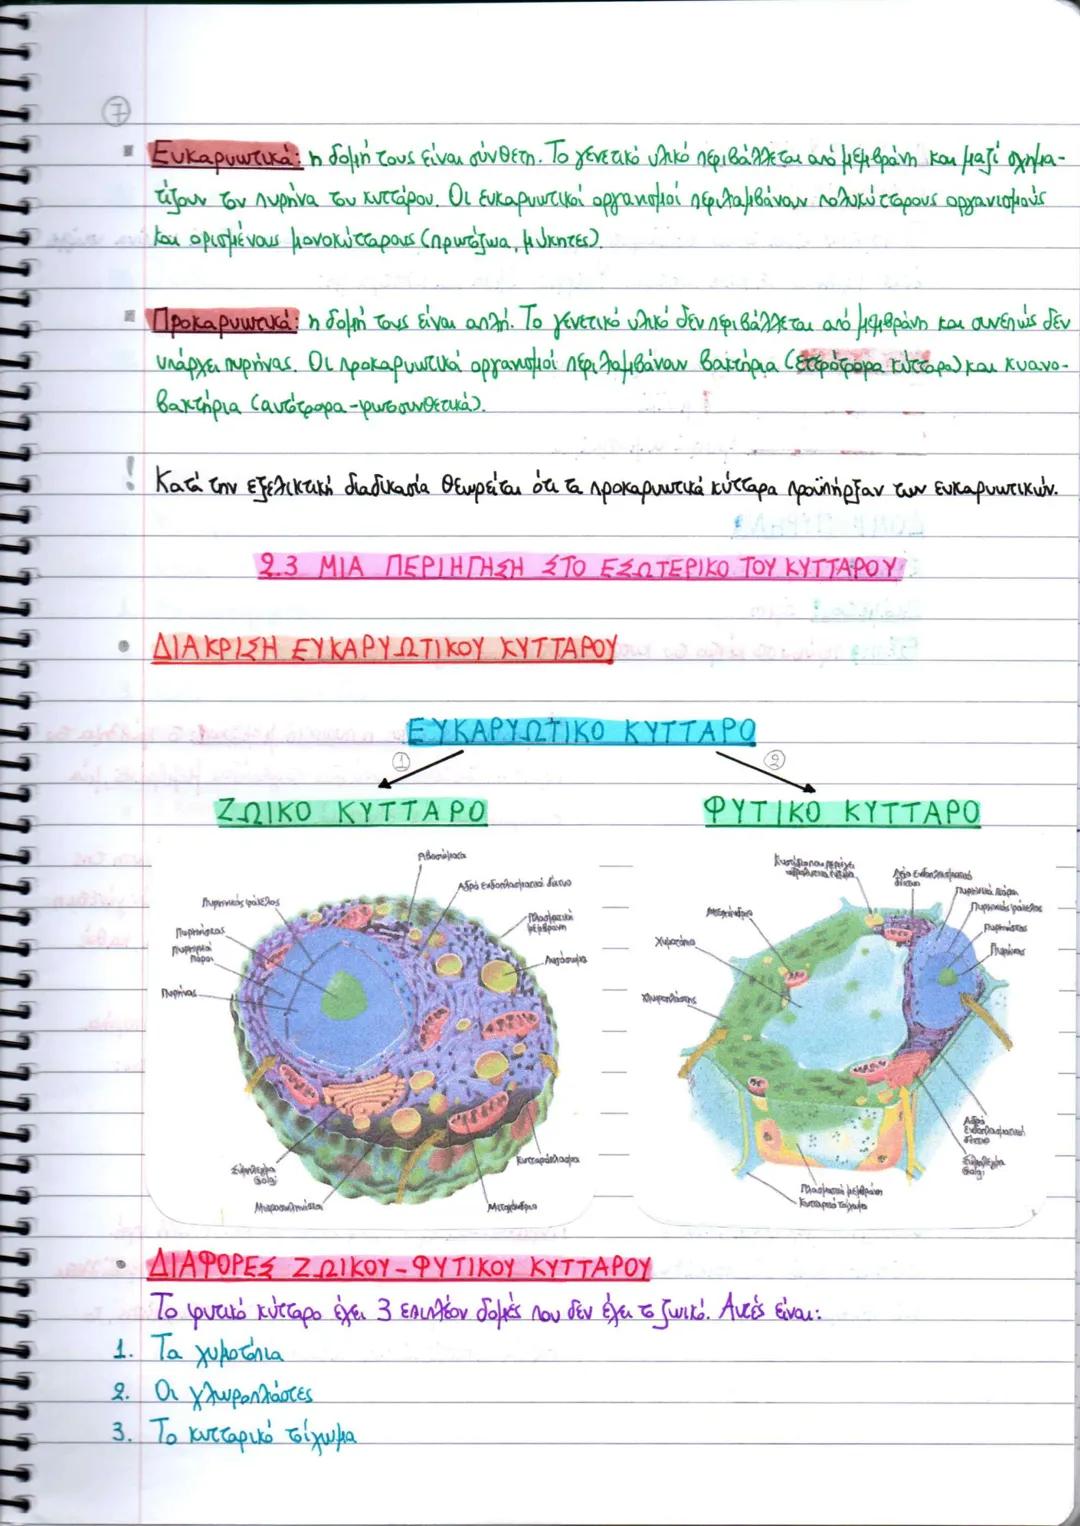 7
Ευκαρυωτικά: η δομή τους είναι σύνθετη. Το γενετικό υλικό περιβάλλεται από μεμβράνη και μαζί σχημα-
τίζουν τον πυρήνα του κυττάρου. Οι ευκαρυωτικοί οργανισμοί περιλαμβάνουν πολυκύτταρους οργανισμούς
και ορισμένους μονοκύτταρους (πρωτόζωα, μύκητες).
Προκαρυωτικά: η δομή τους είναι απλή. Το γενετικό υλικό δεν περιβάλλεται από μεμβράνη και συνεπώς δεν
υπάρχει πυρήνας. Οι προκαρυωτικοί οργανισμοί περιλαμβάνουν βακτήρια (ετερότροφα κύτταρα) και κυανο-
βακτήρια (αυτότροφα-φωτοσυνθετικά).
! Κατά την εξελικτική διαδικασία θεωρείται ότι τα προκαρυωτικά κύτταρα προϋπήρξαν των ευκαρυωτικών.
2.3 ΜΙΑ ΠΕΡΙΗΓΗΣΗ ΣΤΟ ΕΣΩΤΕΡΙΚΟ ΤΟΥ ΚΥΤΤΑΡΟΥ
• ΔΙΑΚΡΙΣΗ ΕΥΚΑΡΥΩΤΙΚΟΥ ΚΥΤΤΑΡΟΥ
ΕΥΚΑΡΥΩΤΙΚΟ ΚΥΤΤΑΡΟ
1 2
ΖΩΙΚΟ ΚΥΤΤΑΡΟ ΦΥΤΙΚΟ ΚΥΤΤΑΡΟ
Ριβοσώματα
Αδρό ενδοπλασματικό δίκτυο
Πυρηνικός φάκελος
Πλασματική
μεμβράνη
Πυρηνίσκος
Πυρηνικοί
πόροι
Λυσόσωμα
Πυρήνας
Σύμπλεγμα
Golgi
Κυτταρόπλασμα
Μικροσωληνίσκοι
Μιτοχόνδριο
Κυστίδιο που περιέχει
Λείο Ενδοπλασματικό
δίκτυο
Πυρηνικοί πόροι
Πυρηνικός φάκελος
Μιτοχόνδριο
Πυρηνίσκος
Χυμοτόπιο
Πυρήνας
Χλωροπλάστης
Αδρό
Ενδοπλασματικό
δίκτυο
Σύμπλεγμα
Golgi
Πλασματική μεμβράνη
Κυτταρικό τοίχωμα
• ΔΙΑΦΟΡΕΣ ΖΩΙΚΟΥ-ΦΥΤΙΚΟΥ ΚΥΤΤΑΡΟΥ
Το φυτικό κύτταρο έχει 3 επιπλέον δομές που δεν έχει το ζωικό. Αυτές είναι:
1. Τα χυμοτόπια
2. Οι χλωροπλάστες
3. Το κυτταρικό τοίχωμα